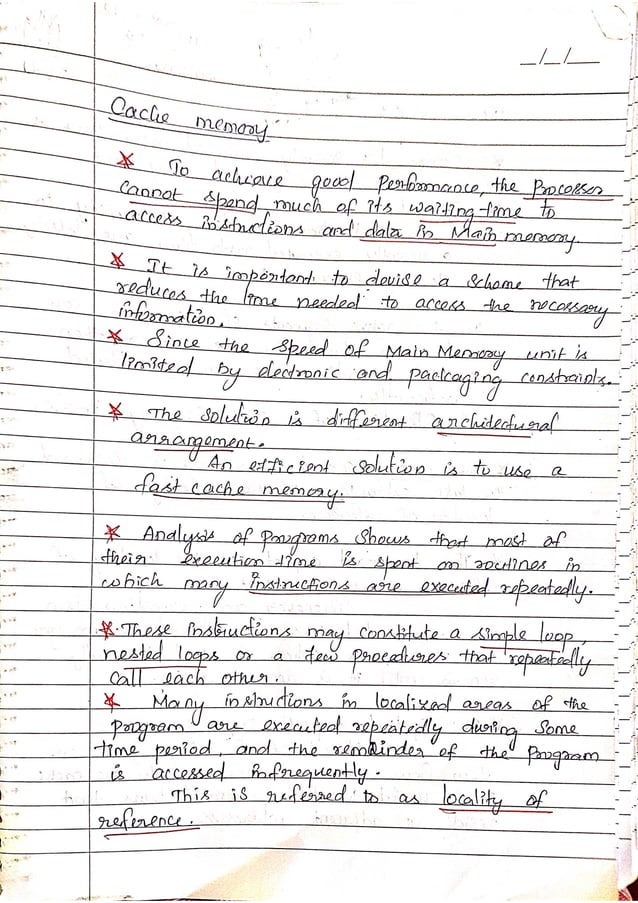 _/_/__
Cache memory
* To achieve good Performance, the Processor
cannot spend much of its waiting time to
access instuctions and data in Main memory.
* It is important to devise a scheme that
reduces the time needed to access the necessary
information.
* Since the speed of Main Memory unit is
limited by electronic and packaging constraints.
* The solution is different architectural
arrangement.
An efficient solution is to use a
fast cache memory.
* Analysis of Programs shows that most of
their execution time is spent on routines in
which many instructions are executed repeatedly.
* These instructions may constitute a simple loop,
nested loops or a few procedures that repeatedly
call each other.
* Many instructions in localized areas of the
program are executed repeatedly during some
time period, and the remainder of the program
is accessed infrequently.
This is referred to as locality of
reference.